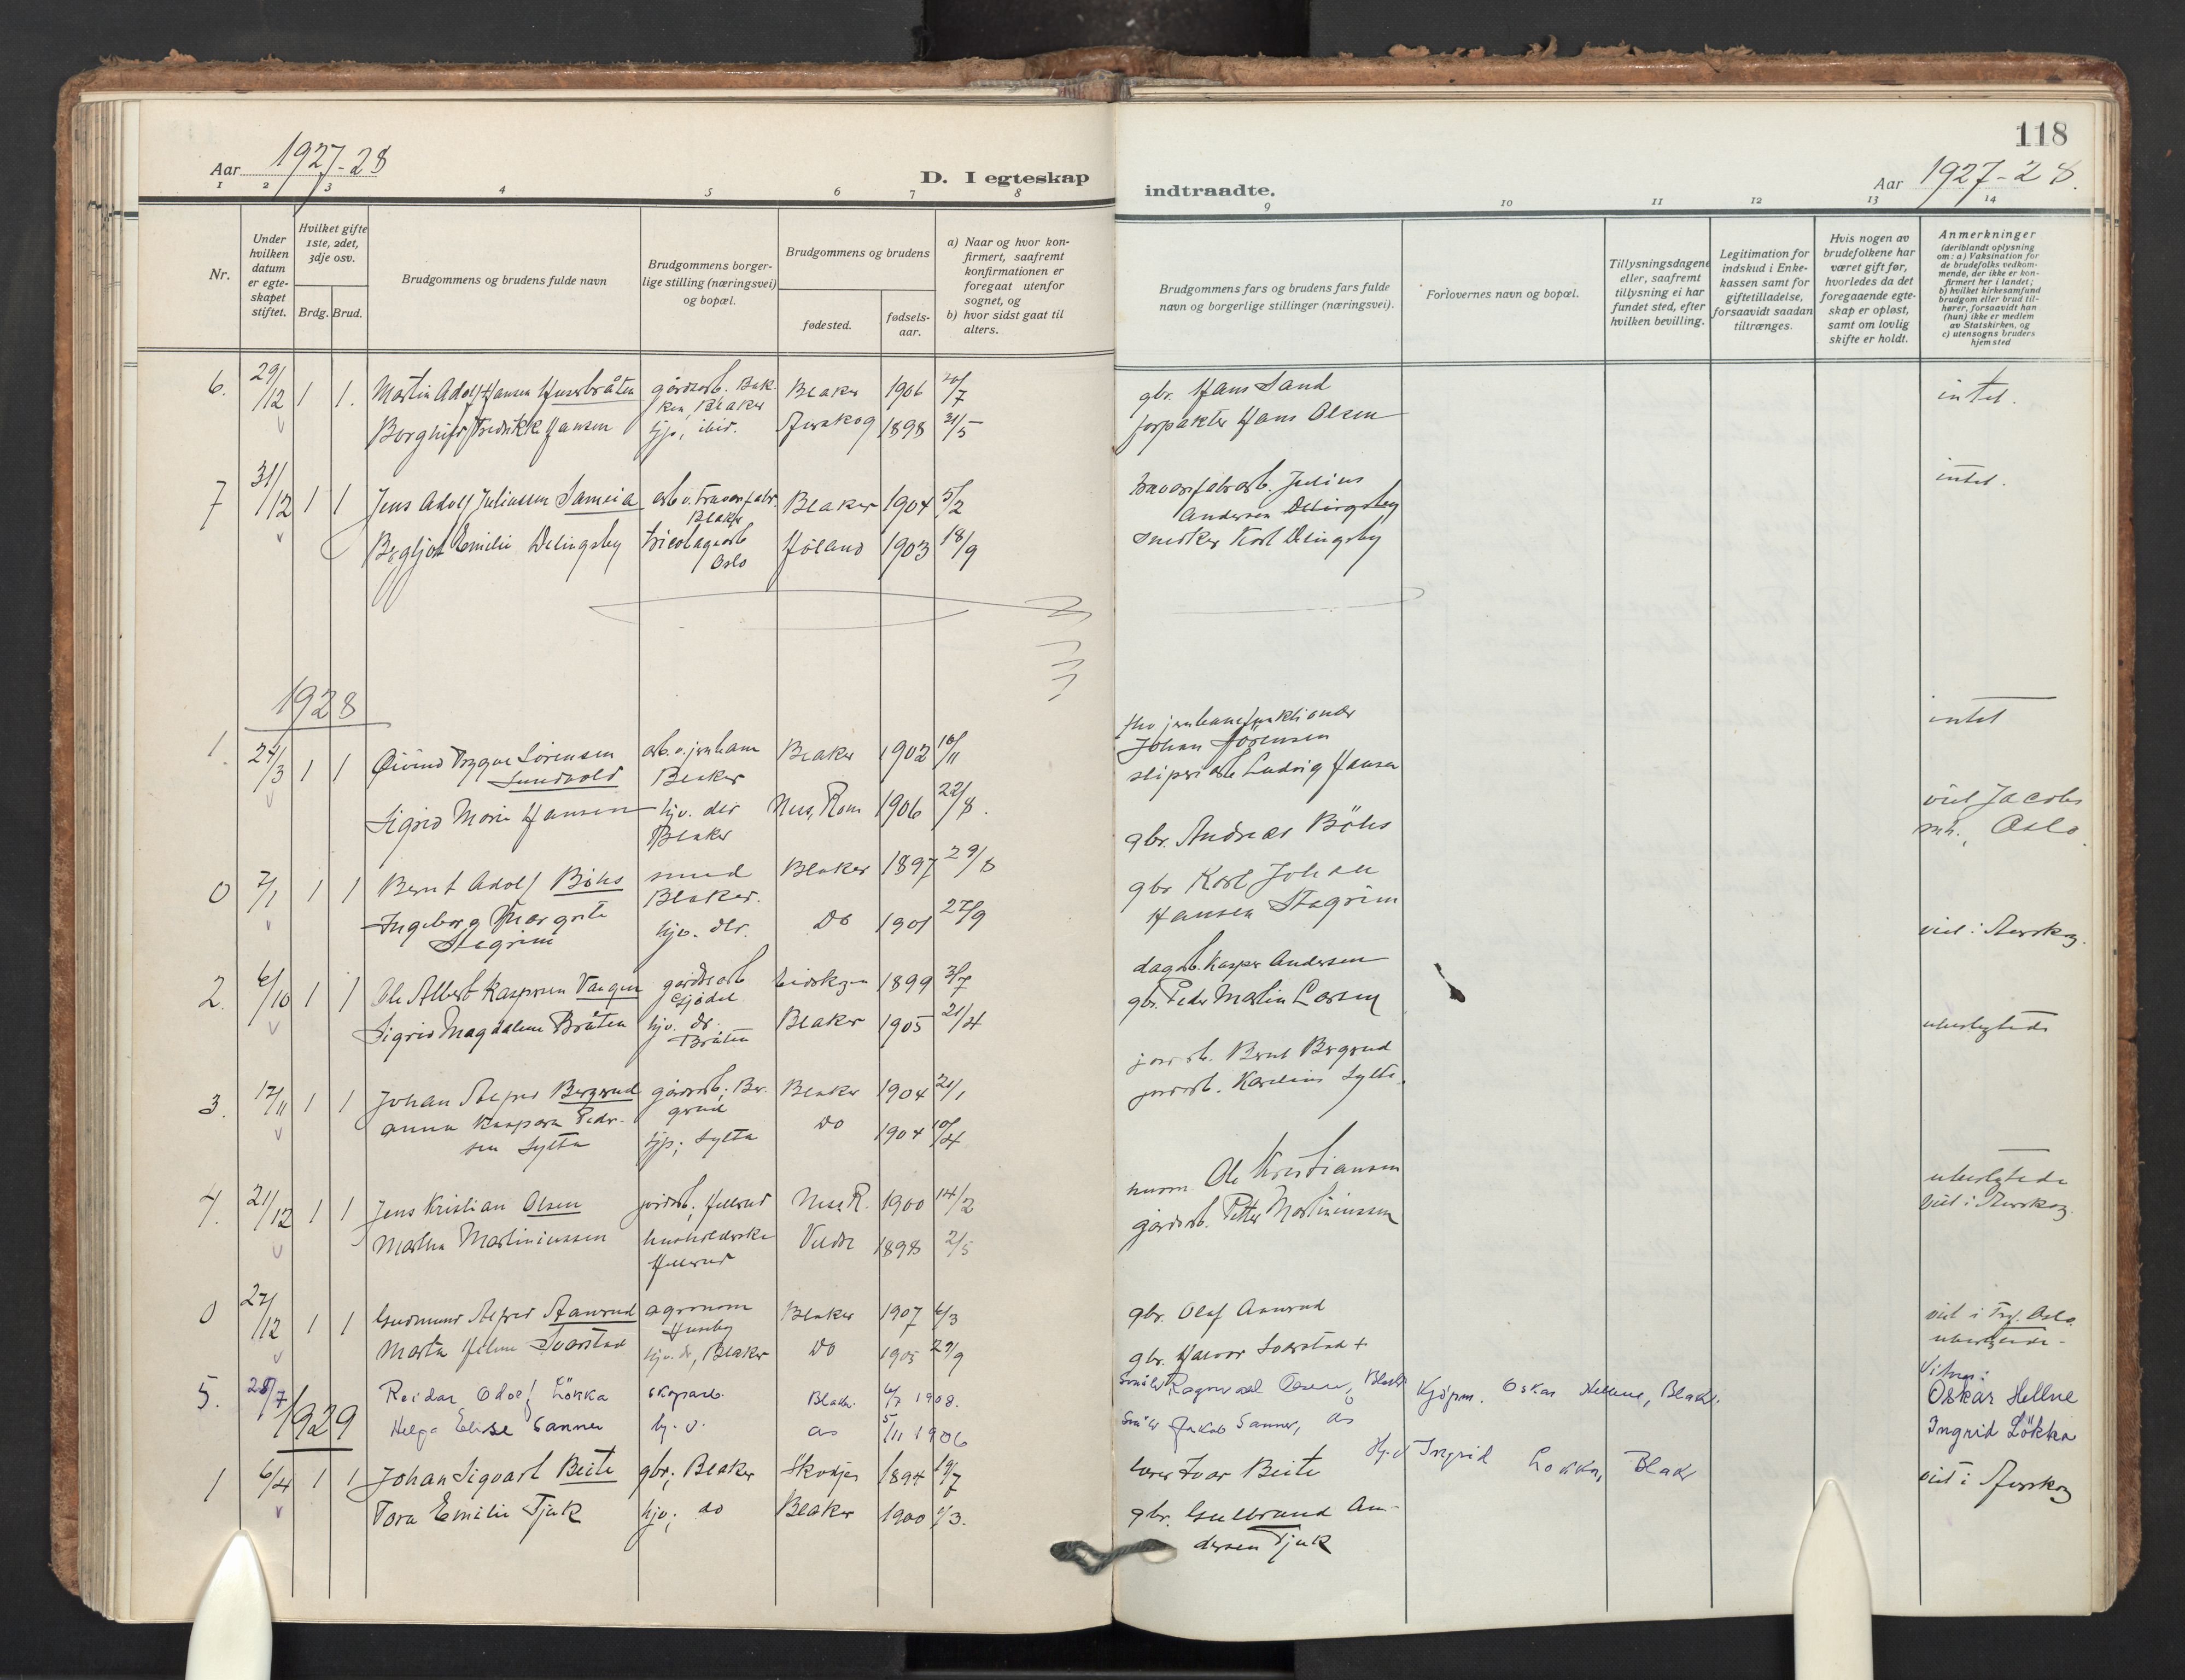 118
Aar 1927-28
Aar 1927-28.
D. I egteskap indtraadte.
1 2 3 4 5 6 7 8 9 10 11 12 13 14
Nr.
Under hvilken datum er egteskapet stiftet.
Hvilket gifte 1ste, 2det, 3dje osv.
Brdg. Brud.
Brudgommens og brudens fulde navn
Brudgommens borgerlige stilling (næringsvei) og bopæl.
Brudgommens og brudens
fødested.
fødselsaar.
a) Naar og hvor konfirmert, saafremt konfirmationen er foregaat utenfor sognet, og
b) hvor sidst gaat til alters.
Brudgommens fars og brudens fars fulde navn og borgerlige stillinger (næringsvei).
Forlovernes navn og bopæl.
Tillysningsdagene eller, saafremt tillysning ei har fundet sted, efter hvilken bevilling.
Legitimation for indskud i Enkekassen samt for giftetilladelse, forsaavidt saadan tiltrænges.
Hvis nogen av brudefolkene har været gift før, hvorledes da det foregaaende egteskap er opløst, samt om lovlig skifte er holdt.
Anmerkninger (deriblandt oplysning om: a) Vaksination for de brudefolks vedkommende, der ikke er konfirmert her i landet; b) hvilket kirkesamfund brudgom eller brud tilhører, forsaavidt han (hun) ikke er medlem av Statskirken, og c) utensogns bruders hjemsted
6. 29/12 1 1. Martin Adolf Hansen Huserbråten gårdsarb. Bakken, Blaker Blaker 1906 /7 gbr. Hans Sand intet.
Borghild Fredrikke Hansen tjp, ibid. Aurskog 1898 31/5 forpakter Hans Olsen
7 31/12 1 1 Jens Adolf Juliussen Sameia arb. v. travarefabr. Blaker Blaker 1904 5/2 travarefabrarb. Julius Andersen Delingsby intet.
Bergljot Emilie Delingsby tricotagearb Oslo Høland 1903 18/9 snedker Karl Delingsby
1928
1. 24/3 1 1 Øivind Trygve Sørensen Sundvold arb. v. jernbane Blaker Blaker 1902 18/11 fhv jernbanefunktionær Johan Sørensen intet
Sigrid Marie Hansen hjv. der Blaker Nes, Rom 1906 22/8. sliperiarb Ludvig Hansen
0 7/1 1 1 Bernt Adolf Böhs smed Blaker. Blaker 1897 29/8 gbr. Andreas Böhs viel Jacobs mh., Oslo.
Ingeborg Margrete Stagrim hjv. der. Do 1901 27/9 gbr Karl Johan Hansen Stagrim
2. 6/10 1 1 Ole Albert Kaspersen Vangen gårdsarb Gjødel Eidskogen 1899 3/7 dagarb. Kasper Andersen viel i Aurskog.
Sigrid Magdalene Bråten hjv. dr. Bråten Blaker 1905 21/4 gbr. Peder Martin Larsen
3. 17/11 1 1 Johan Alfred Bergerud gårdarb; Bergerud Blaker 1904 21/1 jordarb. Bernt Bergerud ubeslegtede
Anna Kaspara Pedersen Sylta tjp; Sylta Do 1904 10/4 jordarb. Karelius Sylta.
4. 21/12 1 1 Jens Kristian Olsen jordarb; Hellerud Nes R. 1900 14/2 Ole Kristiansen ubeslegtede
Martha Martiniussen husholderske Hellerud 1898 2/5 gårdarb. Petter Martiniussen viel i Aurskog.
0 27/12 1 1 Gudmund Alfred Aamrud agronom Huseby Blaker 1907 6/3 gbr. Olaf Aamrud viel i Trf. Oslo.
Marta Helene Svarstad hjv. dr, Blaker Do 1905 29/9 gbr. Halvor Svarstad +
5. 28/7 Reidar Odolf Lökka skoparb. Blaker. 6/7 1908. Ragnvald Olsen, Blaker Kjöpm. Oskar Hellene, Blaker. Vitner: Oskar Hellne
Helga Elise Sanner hj. v. do 5/11 1906 Jakob Sanner, do Hj. v Ingrid Lökka, Blaker Ingrid Lökka
1929
1 6/4 1 1 Johan Sigvart Beite gbr; Blaker Skodje 1894 19/7 lærer Ivar Beite viet i Aurskog
Tora Emilie Tjuk hjv; do Blaker 1900 /3. gbr. Gulbrand Andersen Tjuk